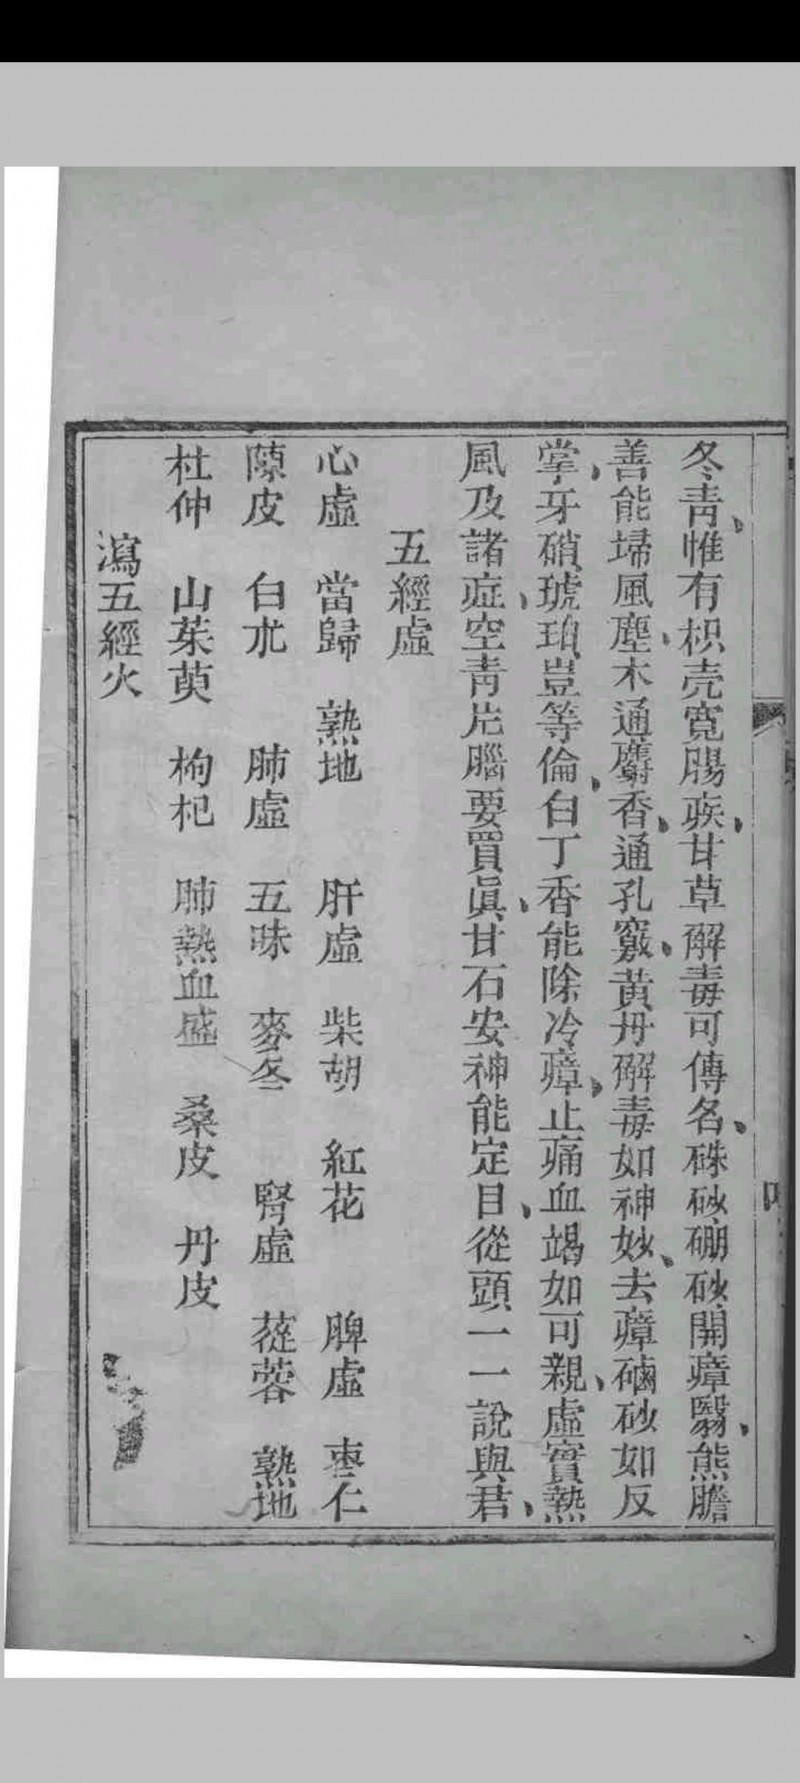 冬青惟有枳壳寛腸痰甘草解毒可傳名硃砂硼砂開瘴翳熊膽
善能埽風塵木通麝香通孔竅黃丹解毒如神妙去瘴磠砂如反
掌牙硝琥珀豈等倫白丁香能除冷瘴止痛血竭如可親虛實熱
風及諸症空青片腦要買眞甘石安神能定目從頭一一說與君
五經虛
心虛 當歸 熟地 肝虛 柴胡 紅花 脾虛 枣仁
陳皮 白朮 肺虛 五味 麥冬 腎虛 蓯蓉 熟地
杜仲 山茱萸 枸杞 肺熱血盛 桑皮 丹皮
瀉五經火